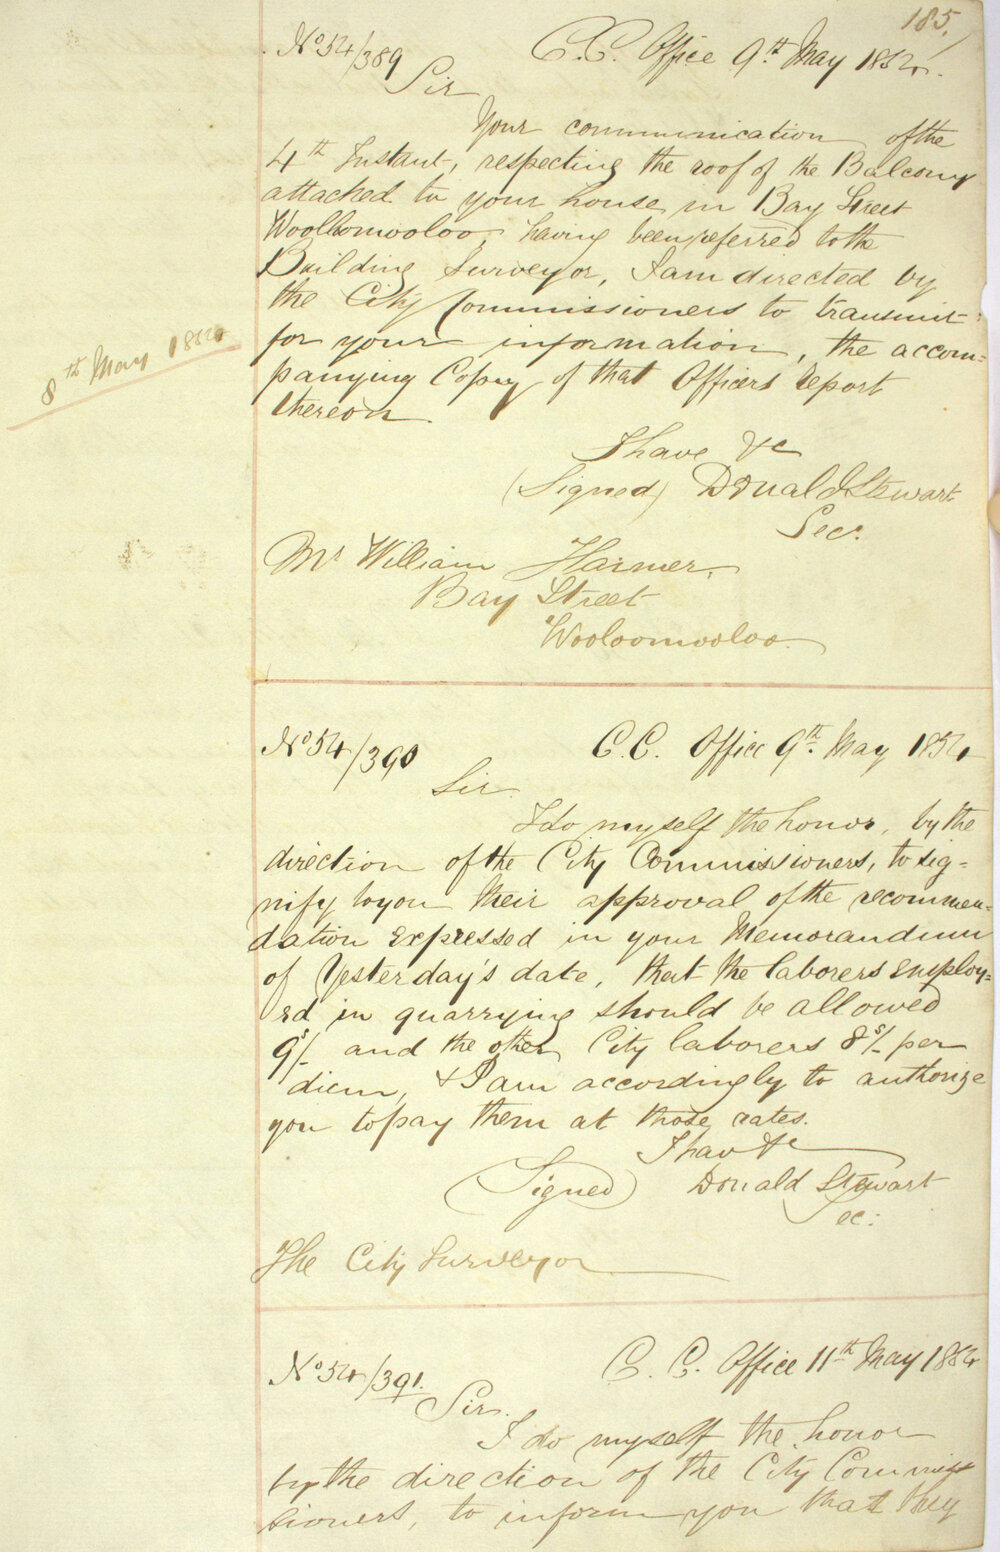 185.
No 54/389
C.C. Office 9th May 1854.
Sir
Your communication of the
4th Instant, respecting the roof of the Balcony
attached to your house in Bay Street
Woolloomooloo, having been referred to the
Building Surveyor, I am directed by
the City Commissioners to transmit
for your information, the accom-
8th May 1854
panying Copy of that Officers report
thereon
I have &c
(Signed) Donald Stewart
Secr.
Mr William Harmer,
Bay Street
Wooloomooloo.
No 54/390
C.C. Office 9th May 1854
Sir
I do myself the honor, by the
direction of the City Commissioners, to sig=
nify to you their approval of the recommen-
dation expressed in your Memorandum
of Yesterday's date, that the laborers employ=
ed in quarrying should be allowed
9s/- and the other City laborers 8s/- per
diem, & I am accordingly to authorize
you to pay them at those rates.
I have &c
(Signed) Donald Stewart
Sec:
The City Surveyor
No 54/391.
C.C. Office 11th May 1854
Sir.
I do myself the honor
by the direction of the City Commis
sioners, to inform you that they